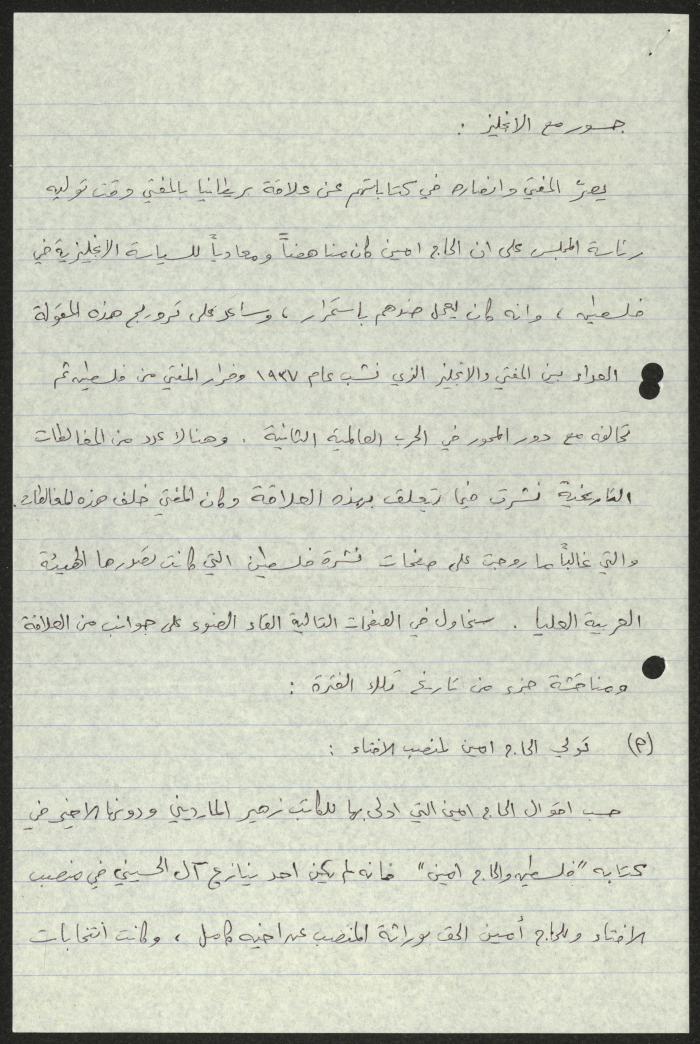 جسور مع الانجليز :
يصرّ المفتي وانصاره في كتاباتهم عن علاقة بريطانيا بالمفتي وقت توليه
رئاسة المجلس على ان الحاج امين كان مناهضاً ومعادياً للسياسة الانجليزية في
فلسطين ، وانه كان يعمل ضدهم باستمرار ، وساعد على ترويج هذه المقولة
العداء بين المفتي والانجليز الذي نشب عام ١٩٣٧ وفرار المفتي من فلسطين ثم
تحالفه مع دور المحور في الحرب العالمية الثانية . وهنالا عدد من المغالطات
التاريخية نشرت فيما يتعلق بهذه العلاقة وكان المفتي خلف هذه المغالطات.
والتي غالباً ما روجت على صفحات نشرة فلسطين التي كانت تصدرها الهيئة
العربية العليا . سنحاول في الصفحات التالية القاء الضوء على جوانب من العلاقة
ومناقشة جزء من تاريخ تلك الفترة :
(٢) تولي الحاج امين لمنصب الافتاء :
حسب اقوال الحاج امين التي ادلى بها للكاتب زهير المارديني ودونها الاخير في
كتابه "فلسطين والحاج امين" فانه لم يكن احد ينازع آل الحسيني في منصب
الافتاء وللحاج أمين الحق بوراثة المنصب عن اخيه كامل ، وكانت انتخابات